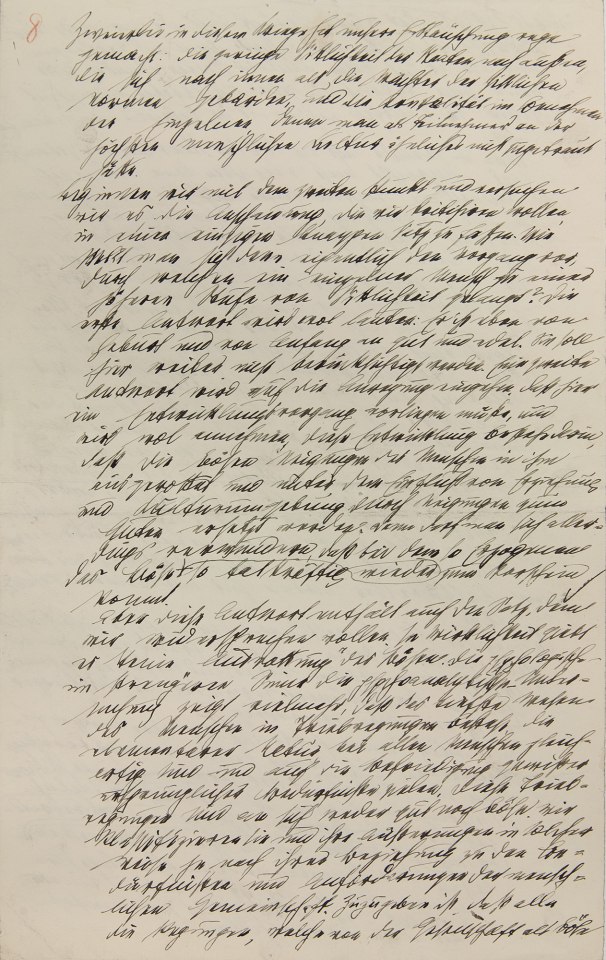 8
Zweierlei in diesem Kriege hat unsere Enttäuschung rege
gemacht: die geringe Sittlichkeit der Staaten nach außen,
die sich nach innen als die Wächter der sittlichen
Normen gebärden, und die Brutalität im Benehmen
der Einzelnen, denen man als Teilnehmer an der
höchsten menschlichen Kultur ähnliches nicht zugetraut
hätte.
Beginnen wir mit dem zweiten Punkt und versuchen
wir es die Anschauung, die wir kritisiren wollen
in einen einzigen knappen Satz zu fassen. Wie
stellt man sich denn eigentlich den Vorgang vor,
durch welchen ein einzelner Mensch zu einer
höheren Stufe von Sittlichkeit gelangt? Die
erste Antwort wird wol lauten: Er ist eben von
Geburt und von Anfang an gut und edel. Sie soll
hier weiter nicht berücksichtigt werden. Eine zweite
Antwort wird auf die Anregung eingehen, daß hier
ein Entwicklungsvorgang vorliegen müße, und
wird wol annehmen, diese Entwicklung bestehe darin,
daß die bösen Neigungen des Menschen in ihm
ausgerottet und unter dem Einfluß von Erziehung
und Kulturumgebung durch Neigungen zum
Guten ersetzt werden. Dann darf man sich aller-
dings verwundern, daß bei dem so Erzogenen
das Böse so tatkräftig wieder zum Vorschein
kommt.
Aber diese Antwort enthält auch den Satz, dem
wir widersprechen wollen. In Wirklichkeit giebt
es keine „Ausrottung" des Bösen. Die psychologische –
im strengeren Sinne die psychoanalytische – Unter-
suchung zeigt vielmehr, daß das tiefste Wesen
des Menschen in Triebregungen besteht, die
elementarer Natur, bei allen Menschen gleich-
artig sind und auf die Befriedigung gewisser
ursprünglicher Bedürfnisse zielen. Diese Trieb-
regungen sind an sich weder gut noch böse. Wir
klassifiziren sie und ihre Äußerungen in solcher
Weise je nach ihrer Beziehung zu den Be-
dürfnissen und Anforderungen der mensch-
lichen Gemeinschaft. Zuzugeben ist, daß alle
die Regungen, welche von der Gesellschaft als böse